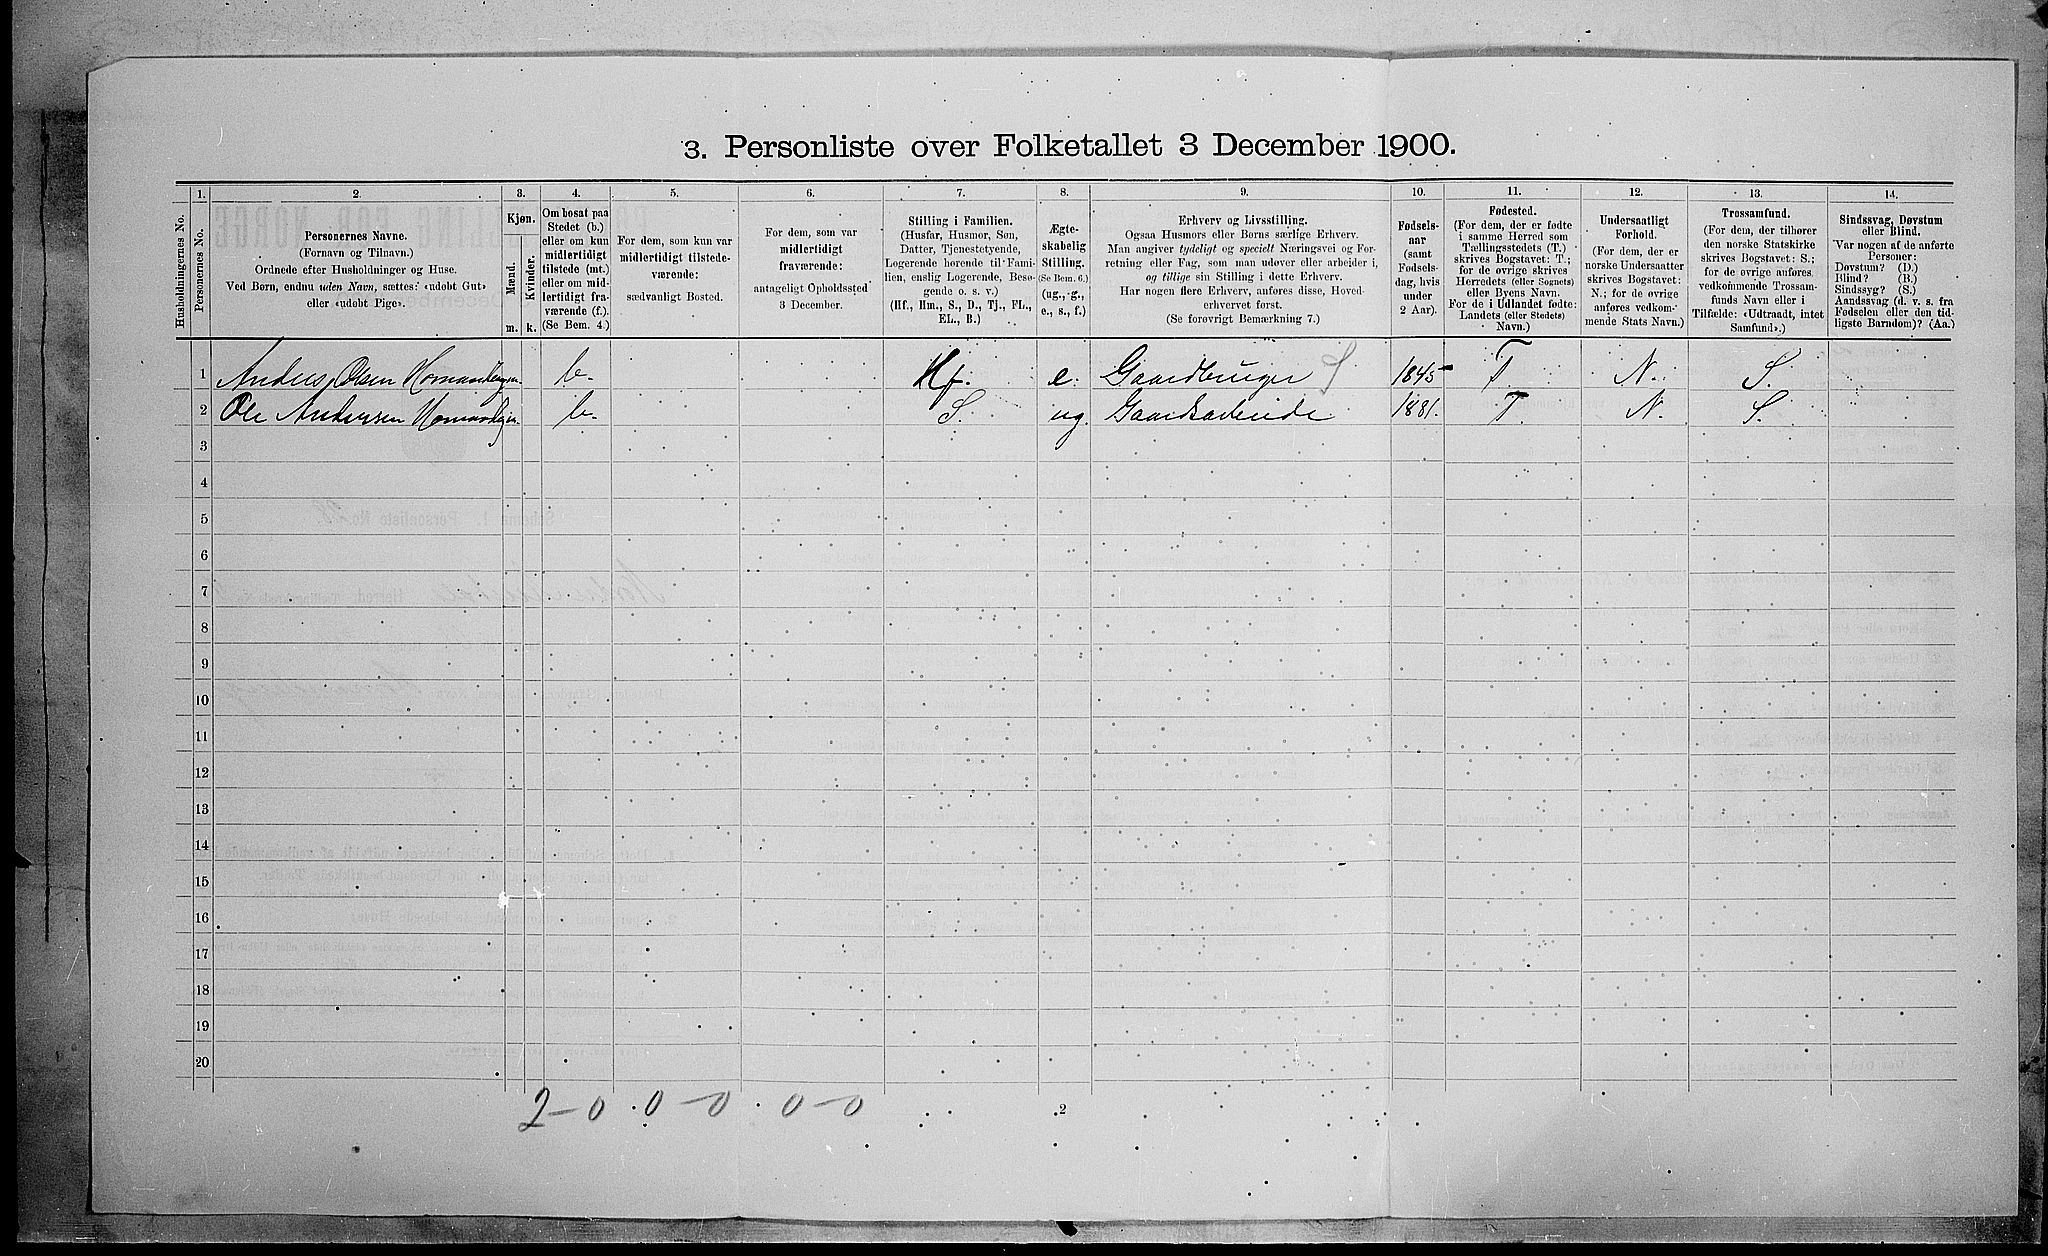 3. Personliste over Folketallet 3 December 1900.
Husholdningernes No.
1.
Personernes No.
2.
Personernes Navne.
(Fornavn og Tilnavn.)
Ordnede efter Husholdninger og Huse.
Ved Børn, endnu uden Navn, sættes: «udøbt Gut»
eller «udøbt Pige».
3.
Kjøn.
Mænd.
Kvinder.
m. k.
4.
Om bosat paa
Stedet (b.)
eller om kun
midlertidigt
tilstede (mt.)
eller om mid-
lertidigt fra-
værende (f.).
(Se Bem. 4.)
5.
For dem, som kun var
midlertidigt tilstede-
værende:
sædvanligt Bosted.
6.
For dem, som var
midlertidigt
fraværende:
antageligt Opholdssted
3 December.
7.
Stilling i Familien.
(Husfar, Husmor, Søn,
Datter, Tjenestetyende,
Logerende hørende til Fami-
lien, enslig Logerende, Besø-
gende o. s. v.)
(Hf., Hm., S., D., Tj., FL.,
EL., B.)
8.
Ægte-
skabelig
Stilling.
(Se Bem. 6.)
(ug., g.,
e., s., f.)
9.
Erhverv og Livsstilling.
Ogsaa Husmors eller Børns særlige Erhverv.
Man angiver tydeligt og specielt Næringsvei og For-
retning eller Fag, som man udøver eller arbeider i,
og tillige sin Stilling i dette Erhverv.
Har nogen flere Erhverv, anføres disse, Hoved-
erhvervet først.
(Se forøvrigt Bemærkning 7.)
10.
Fødsels-
aar
(samt
Fødsels-
dag, hvis
under
2 Aar).
11.
Fødested.
(For dem, der er fødte
i samme Herred som
Tællingsstedets (T.)
skrives Bogstavet: T.;
for de øvrige skrives
Herredets (eller Sognets)
eller Byens Navn.
For de i Udlandet fødte:
Landets (eller Stedets)
Navn.)
12.
Undersaatligt
Forhold.
(For dem, der er
norske Undersaatter
skrives Bogstavet:
N.; for de øvrige
anføres vedkom-
mende Stats Navn.)
13.
Trossamfund.
(For dem, der tilhører
den norske Statskirke
skrives Bogstavet: S.;
for de øvrige anføres
vedkommende Trossam-
funds Navn eller i
Tilfælde: «Udtraadt, intet
Samfund».)
14.
Sindssvag, Døvstum
eller Blind.
Var nogen af de anførte
Personer:
Døvstum? (D.)
Blind? (B.)
Sindssyg? (S.)
Aandssvag (d. v. s. fra
Fødselen eller den tid-
ligste Barndom)? (Aa.)
1 Anders Olsen b. Hf. e. Gaardbruger S 1845 T. N. S.
2 Ole Andersen b. S. ug. Gaardsarbeide 1881. T. N. S.
3
4
5
6
7
8
9
10
11
12
13
14
15
16
17
18
19
20
2-0 0-0 0-0
2